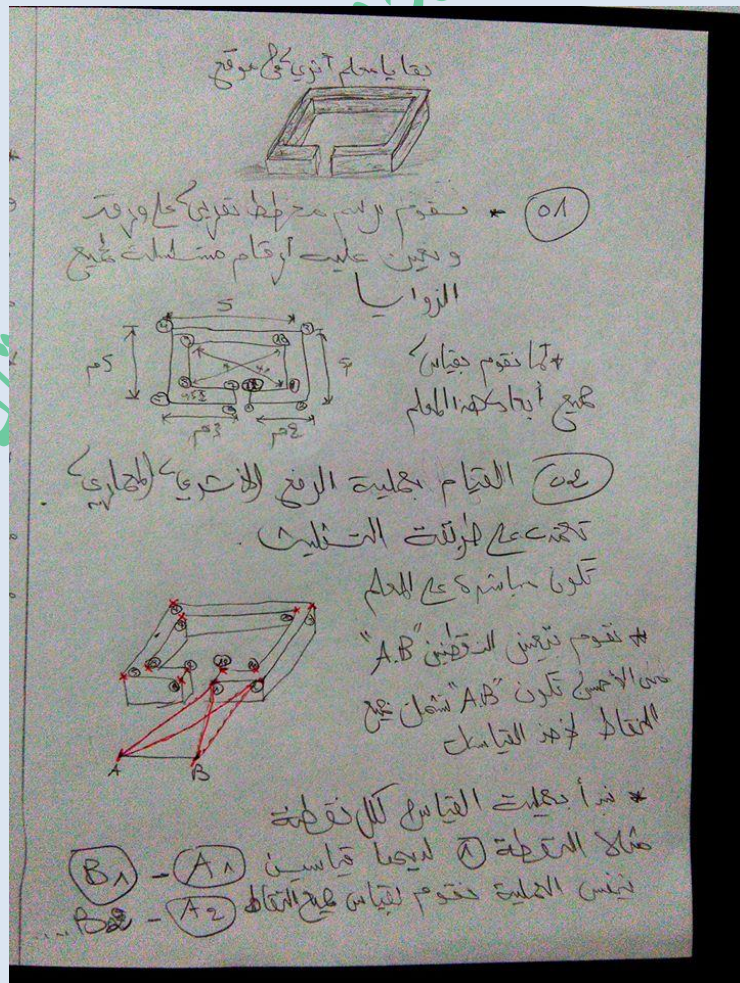 بقايا معلم أثري في موقع
01 * نقوم برسم مخطط تقريبي على ورقة
ونعين عليه أرقام متسلسلة لجميع
الزوايا
5
* كما نقوم بقياس
جميع أبعاد هذا المعلم
5م
3م
2م
02 القيام بعملية الرفع الأثري المعماري
تعتمد على طريقة التثليث.
تكون مباشرة على المعلم
* نقوم بتعيين النقطتين "A.B"
من الأحسن تكون "A.B" تشمل جميع
النقاط لأخذ القياسات
A B
* نبدأ بعملية القياس لكل نقطة
مثلا النقطة 1 لديها قياسين A1 - B1
بنفس العملية نقوم بقياس جميع النقاط A2 - B2 ...